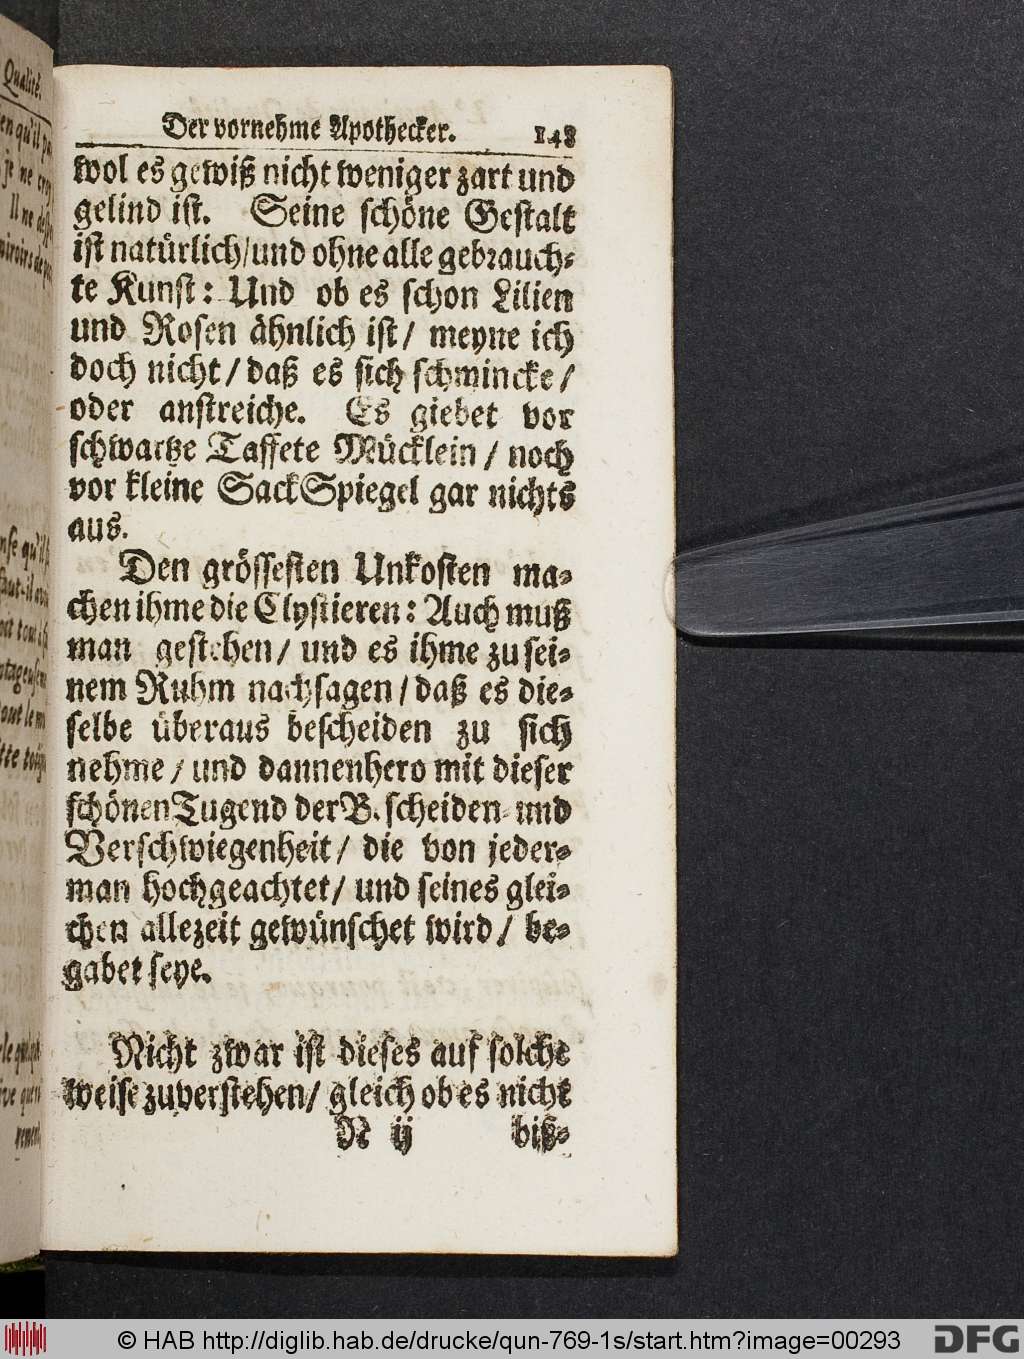 Qualité.
Der vornehme Apothecker. 143
wol es gewiß nicht weniger zart und
gelind ist. Seine schöne Gestalt
ist natürlich/und ohne alle gebrauch-
te Kunst: Und ob es schon Lilien
und Rosen ähnlich ist/ meyne ich
doch nicht/ daß es sich schmincke/
oder anstreiche. Es giebet vor
schwartze Taffete Mücklein/ noch
vor kleine SackSpiegel gar nichts
aus.
Den grössesten Unkosten ma-
chen ihme die Clystieren: Auch muß
man gestehen/ und es ihme zu sei-
nem Ruhm nachsagen/ daß es die-
selbe überaus bescheiden zu sich
nehme/ und dannenhero mit dieser
schönen Tugend der Bescheiden- und
Verschwiegenheit/ die von jeder-
man hochgeachtet/ und seines glei-
chen allezeit gewünschet wird/ be-
gabet seye.
Nicht zwar ist dieses auf solche
weise zuverstehen/ gleich ob es nicht
N ij biß-
© HAB http://diglib.hab.de/drucke/qun-769-1s/start.htm?image=00293 DFG